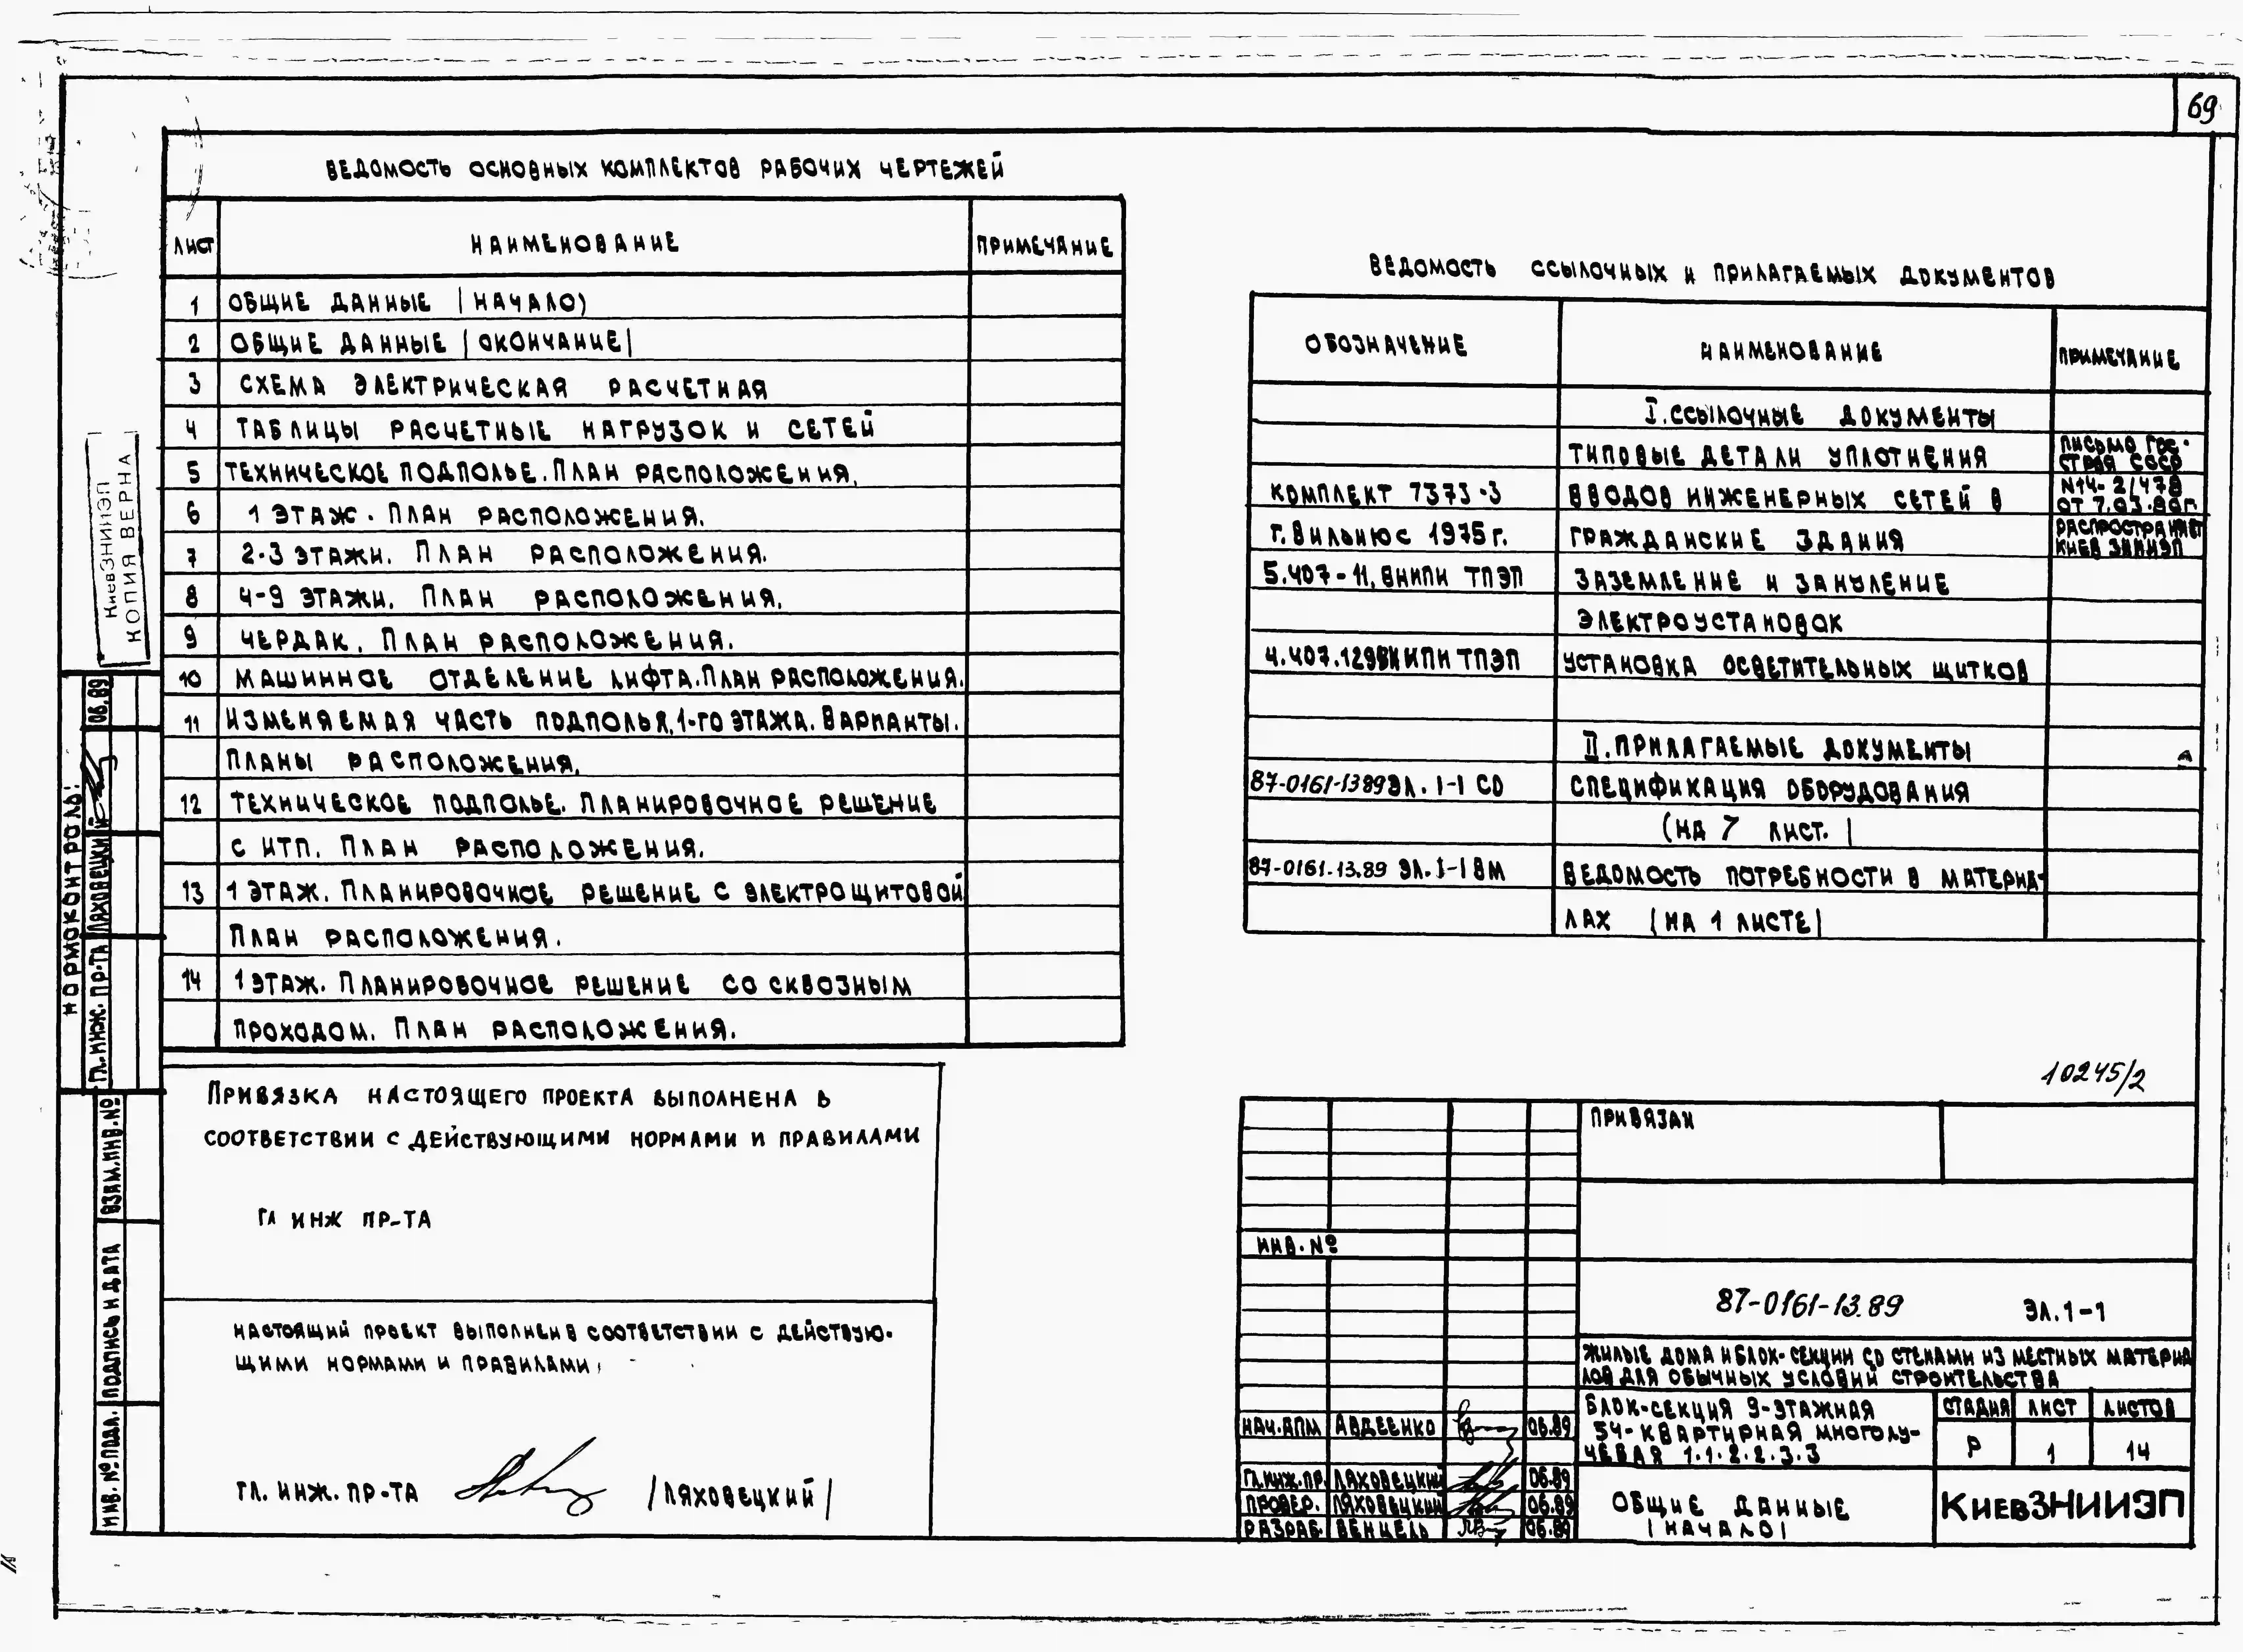 69
ВЕДОМОСТЬ ОСНОВНЫХ КОМПЛЕКТОВ РАБОЧИХ ЧЕРТЕЖЕЙ
ЛИСТ НАИМЕНОВАНИЕ ПРИМЕЧАНИЕ
1 ОБЩИЕ ДАННЫЕ (НАЧАЛО)
2 ОБЩИЕ ДАННЫЕ (ОКОНЧАНИЕ)
3 СХЕМА ЭЛЕКТРИЧЕСКАЯ РАСЧЕТНАЯ
4 ТАБЛИЦЫ РАСЧЕТНЫЕ НАГРУЗОК И СЕТЕЙ
5 ТЕХНИЧЕСКОЕ ПОДПОЛЬЕ. ПЛАН РАСПОЛОЖЕНИЯ.
6 1 ЭТАЖ. ПЛАН РАСПОЛОЖЕНИЯ.
7 2-3 ЭТАЖИ. ПЛАН РАСПОЛОЖЕНИЯ.
8 4-9 ЭТАЖИ. ПЛАН РАСПОЛОЖЕНИЯ.
9 ЧЕРДАК. ПЛАН РАСПОЛОЖЕНИЯ.
10 МАШИННОЕ ОТДЕЛЕНИЕ ЛИФТА. ПЛАН РАСПОЛОЖЕНИЯ.
11 ИЗМЕНЯЕМАЯ ЧАСТЬ ПОДПОЛЬЯ, 1-ГО ЭТАЖА. ВАРИАНТЫ.
ПЛАНЫ РАСПОЛОЖЕНИЯ.
12 ТЕХНИЧЕСКОЕ ПОДПОЛЬЕ. ПЛАНИРОВОЧНОЕ РЕШЕНИЕ
С ИТП. ПЛАН РАСПОЛОЖЕНИЯ.
13 1 ЭТАЖ. ПЛАНИРОВОЧНОЕ РЕШЕНИЕ С ЭЛЕКТРОЩИТОВОЙ
ПЛАН РАСПОЛОЖЕНИЯ.
14 1 ЭТАЖ. ПЛАНИРОВОЧНОЕ РЕШЕНИЕ СО СКВОЗНЫМ
ПРОХОДОМ. ПЛАН РАСПОЛОЖЕНИЯ.
ВЕДОМОСТЬ ССЫЛОЧНЫХ И ПРИЛАГАЕМЫХ ДОКУМЕНТОВ
ОБОЗНАЧЕНИЕ НАИМЕНОВАНИЕ ПРИМЕЧАНИЕ
I. ССЫЛОЧНЫЕ ДОКУМЕНТЫ
ТИПОВЫЕ ДЕТАЛИ УПЛОТНЕНИЯ
КОМПЛЕКТ 7373-3 ВВОДОВ ИНЖЕНЕРНЫХ СЕТЕЙ В
Г. ВИЛЬНЮС 1975 Г. ГРАЖДАНСКИЕ ЗДАНИЯ
ПИСЬМО ГОС-
СТРОЯ СССР
N14-2/478
ОТ 7.03.80Г.
РАСПРОСТРАНЯЕТ
КИЕВ ЗНИИЭП
5.407-11, ВНИПИ ТПЭП ЗАЗЕМЛЕНИЕ И ЗАНУЛЕНИЕ
ЭЛЕКТРОУСТАНОВОК
4.407.129 ВНИПИ ТПЭП УСТАНОВКА ОСВЕТИТЕЛЬНЫХ ЩИТКОВ
II. ПРИЛАГАЕМЫЕ ДОКУМЕНТЫ
87-0161-13.89 ЭЛ. 1-1 СО СПЕЦИФИКАЦИЯ ОБОРУДОВАНИЯ
(НА 7 ЛИСТ.)
87-0161.13.89 ЭЛ. 1-1 ВМ ВЕДОМОСТЬ ПОТРЕБНОСТИ В МАТЕРИА-
ЛАХ (НА 1 ЛИСТЕ)
ПРИВЯЗКА НАСТОЯЩЕГО ПРОЕКТА ВЫПОЛНЕНА В
СООТВЕТСТВИИ С ДЕЙСТВУЮЩИМИ НОРМАМИ И ПРАВИЛАМИ
ГЛ ИНЖ ПР-ТА
НАСТОЯЩИЙ ПРОЕКТ ВЫПОЛНЕН В СООТВЕТСТВИИ С ДЕЙСТВУЮ-
ЩИМИ НОРМАМИ И ПРАВИЛАМИ.
ГЛ. ИНЖ. ПР-ТА (ЛЯХОВЕЦКИЙ)
КиевЗНИИЭП
КОПИЯ ВЕРНА
НОРМОКОНТРОЛЬ:
ГЛ. ИНЖ. ПР-ТА ЛЯХОВЕЦКИЙ 06.89
ВЗАМ. ИНВ. №
ПОДПИСЬ И ДАТА
ИНВ. № ПОДЛ.
10245/2
ПРИВЯЗАН
ИНВ. №
87-0161-13.89 ЭЛ.1-1
ЖИЛЫЕ ДОМА И БЛОК-СЕКЦИИ СО СТЕНАМИ ИЗ МЕСТНЫХ МАТЕРИА
ЛОВ ДЛЯ ОБЫЧНЫХ УСЛОВИЙ СТРОИТЕЛЬСТВА
НАЧ. АПМ АВДЕЕНКО 06.89
ГЛ. ИНЖ. ПР. ЛЯХОВЕЦКИЙ 06.89
ПРОВЕР. ЛЯХОВЕЦКИЙ 06.89
РАЗРАБ. ВЕНЦЕЛЬ 06.89
БЛОК-СЕКЦИЯ 9-ЭТАЖНАЯ
54-КВАРТИРНАЯ МНОГОЛУ-
ЧЕВАЯ 1.1.2.2.3.3
СТАДИЯ ЛИСТ ЛИСТОВ
Р 1 14
ОБЩИЕ ДАННЫЕ
(НАЧАЛО)
КиевЗНИИЭП